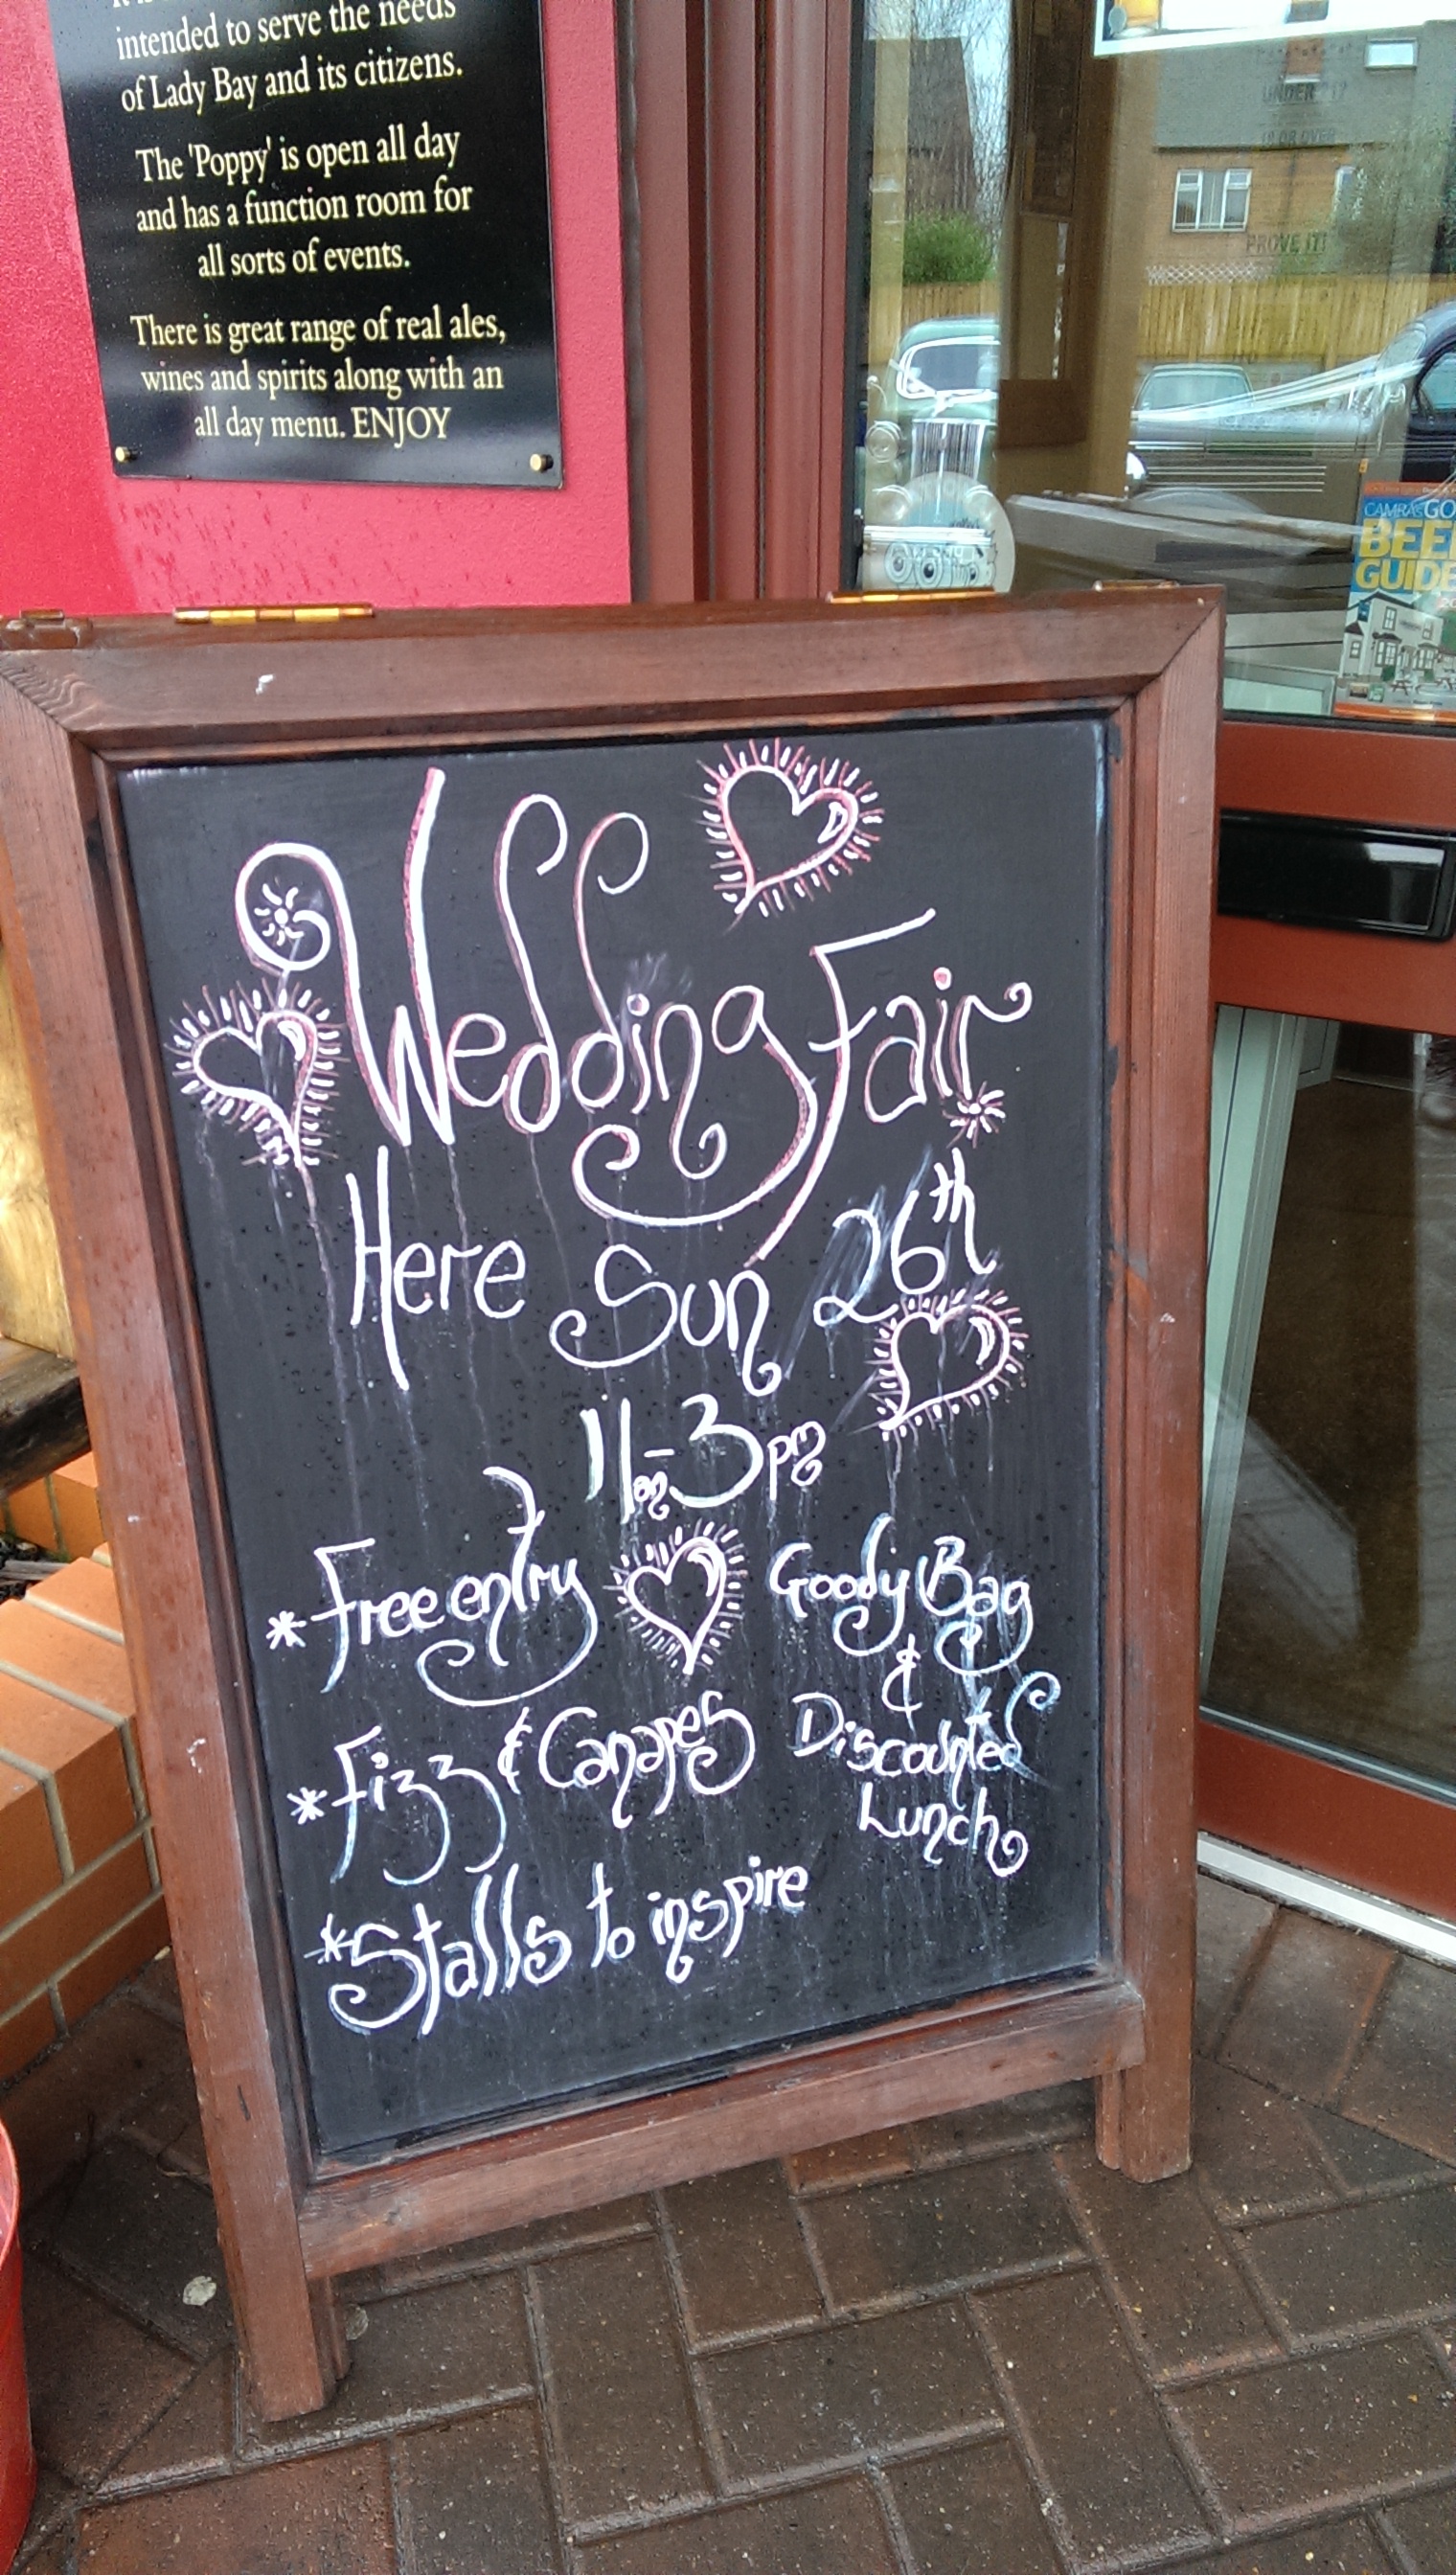 intended to serve the needs
of Lady Bay and its citizens.
The 'Poppy' is open all day
and has a function room for
all sorts of events.
There is great range of real ales,
wines and spirits along with an
all day menu. ENJOY
UNDER 21?
18 OR OVER
PROVE IT!
CAMRA'S GO
BEE
GUIDE
Wedding Fair
Here Sun 26th
11am-3pm
*Free entry
*Fizz & Canapes
*Stalls to inspire
Goody Bag
&
Discounted
Lunch